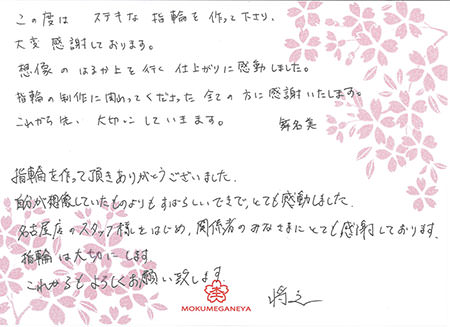 この度は ステキな 指輪を作って下さり、
大変 感謝しております。
想像の はるか上を行く 仕上がりに感動しました。
指輪の制作に関わってくださった 全ての方に感謝いたします。
これから先、大切にしていきます。
指輪を作って頂きありがとうございました。
自分が想像していたものよりもすばらしいできで、とても感動しました。
名古屋店のスタッフ様をはじめ、関係者のみなさまにとても感謝しております。
指輪は大切にします。
これからもよろしくお願い致します。
将之
MOKUMEGANEYA